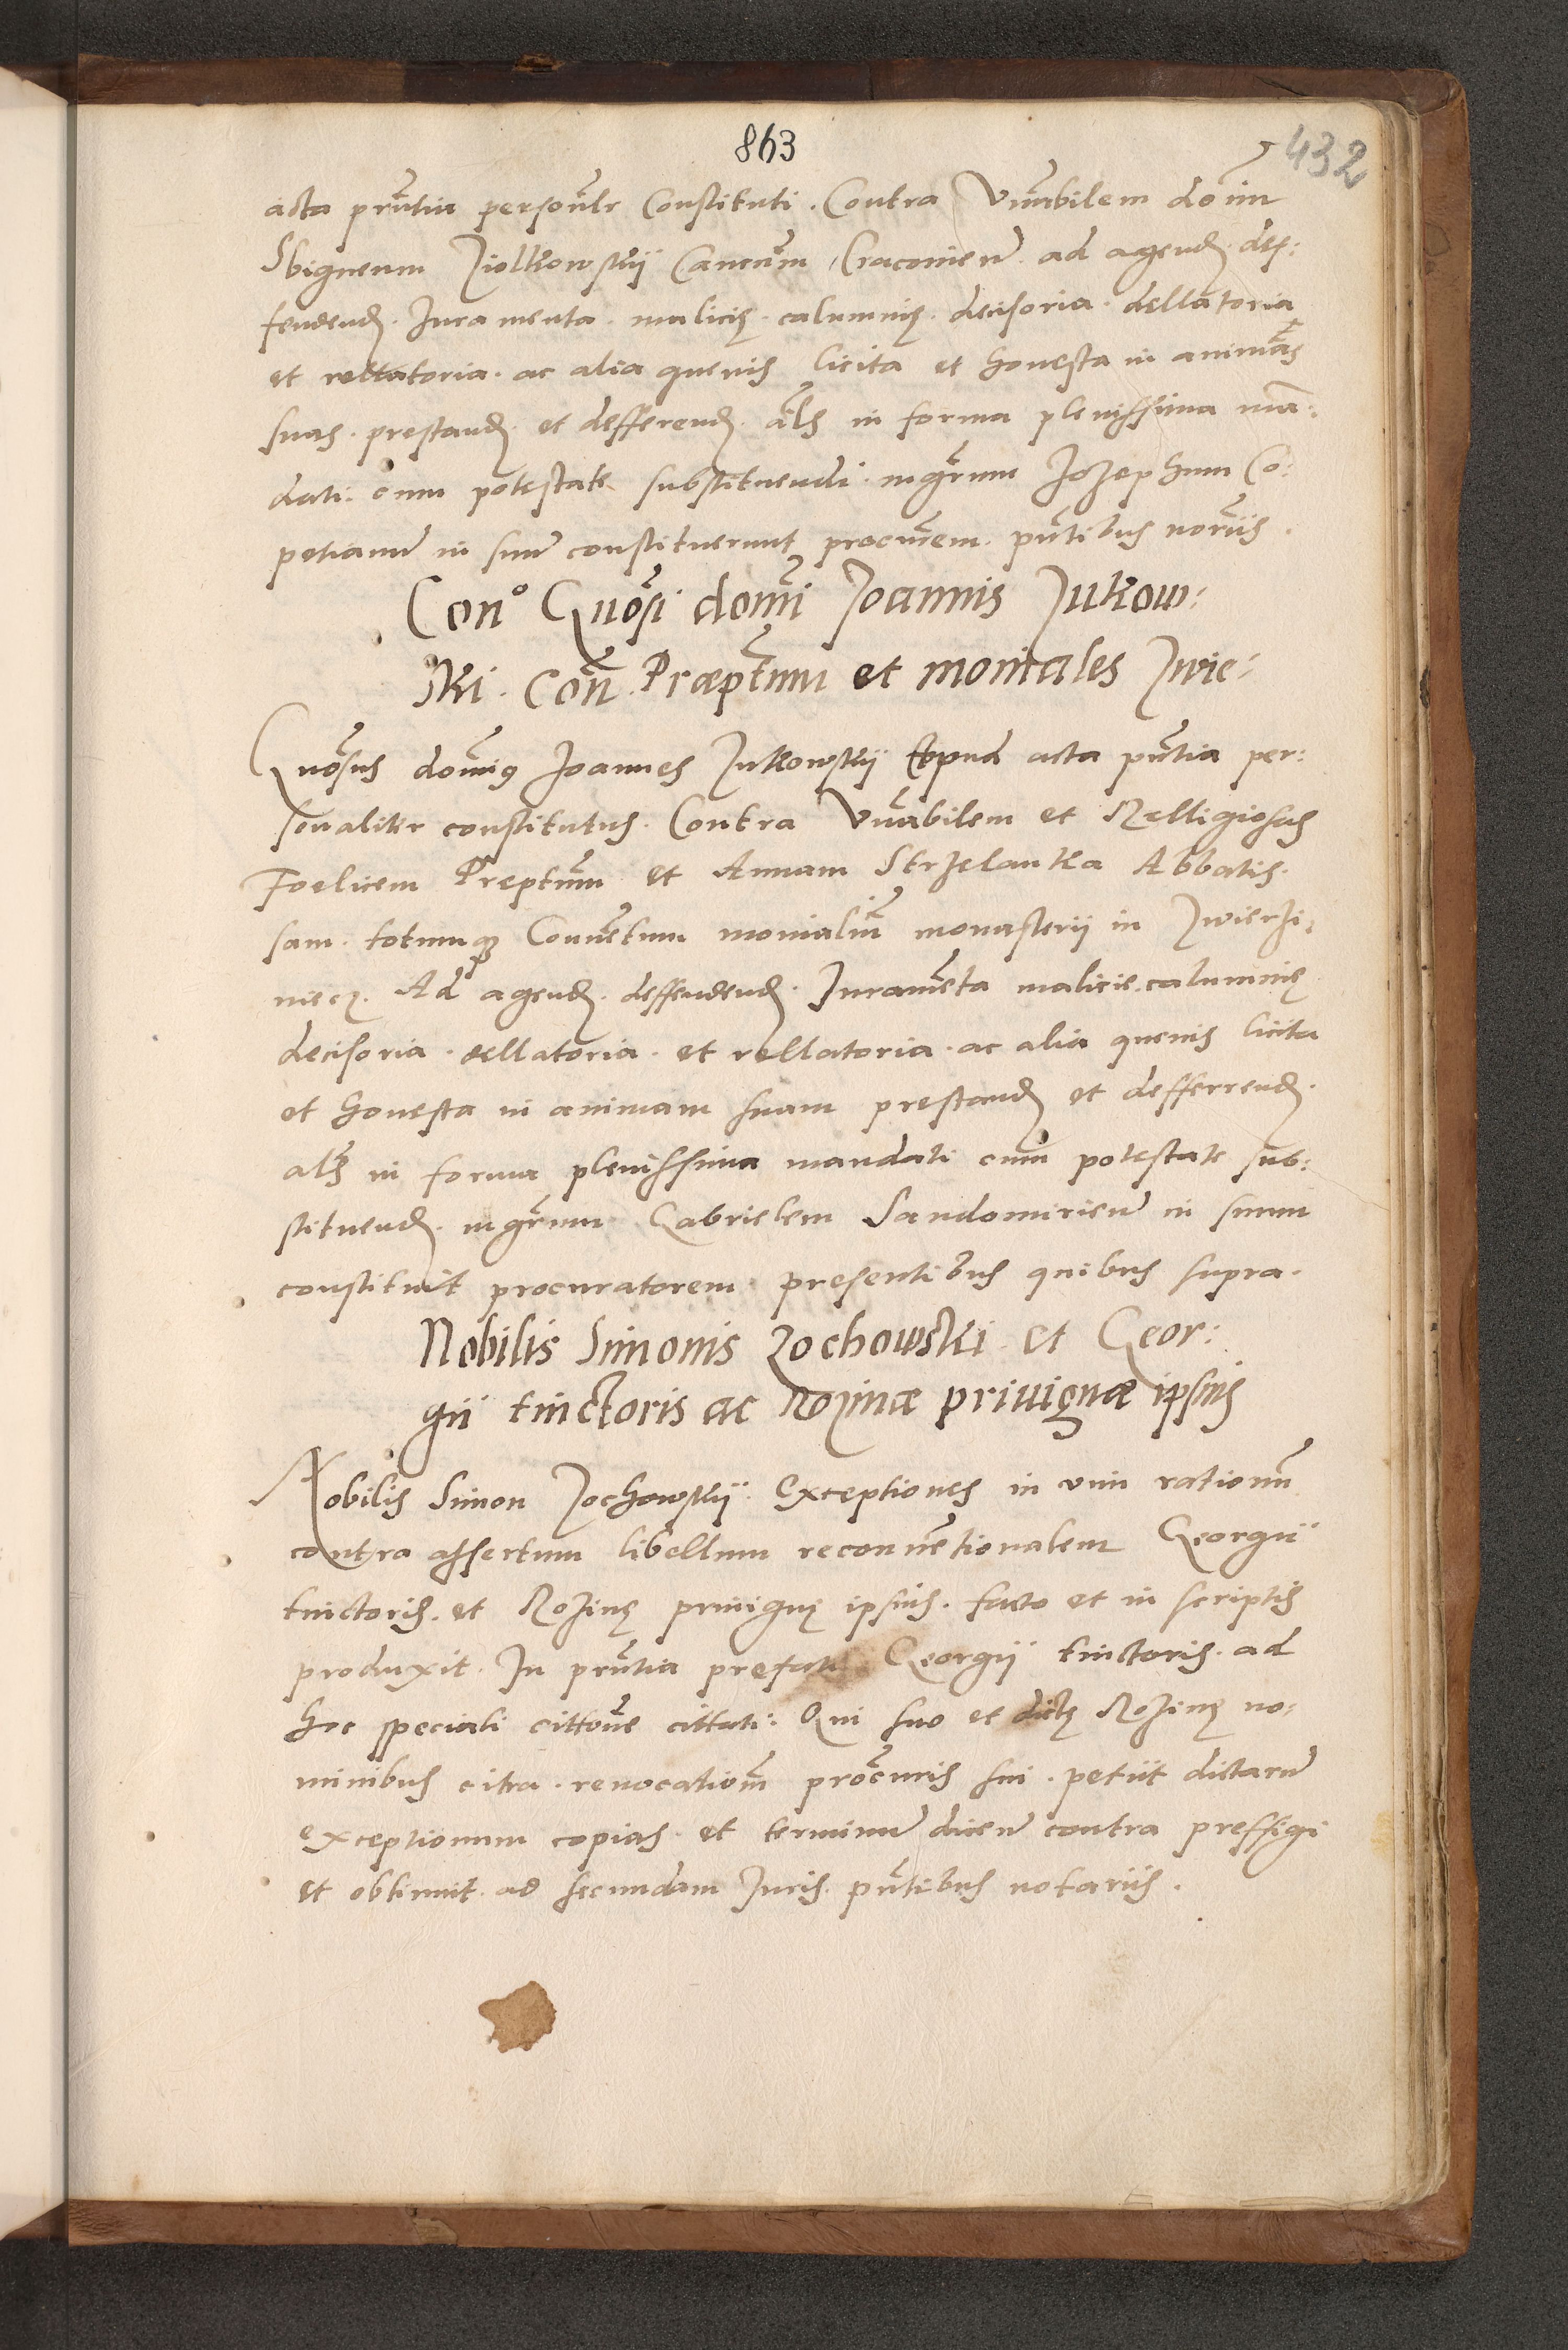 863
432
acta prñtia persoñlr Constituti. Contra Vñabilem dõim
Sbigneum Ziolkowskij Canocũm Cracoviẽn ad agend. def:
fendend. Juramenta. malicię. calumnię. decisoria. dellatoria
et rellatoria. ac alia quevis licita et honesta in animas
suas. prestand. et defferend. aĩls in forma plenissima mã:
dati: cum potestate substituendi. mgr̃um Jozephum Co:
petianũ in suũ constituerunt procur̃em. pñtibus nor̃iis.
Con° Gnõsi domĩ Joannis Zukow:
ski. Coñ. Præpt̃um et moniales Zwie:
Gnõsus domĩq Joannes Zukowskij Apud acta pñtia per:
sonaliter constitutus. Contra Vñabilem et Relligiosas
Foelicem Prept̃um et Annam Strzelanka Abbatis:
sam. totumq Convẽtum monialiũ monasterij in Zwierzi:
niecz. Ad agend. deffendend. Juramẽta malicie. calumnię
decisoria. dellatoria. et rellatoria. ac alia quevis licita
et honesta in animam suam prestand et defferrend.
alĩs in forma plenissima mandati cum potestate sub:
stituend. mgr̃um Gabrielem Sandomiriẽn in suum
constituit procuratorem presentibus quibus supra.
Nobilis Simonis Zochowski et Geor:
gii tinctoris ac Rozinæ privignæ ipsius
Nobilis Simon Zochowskij Exceptiones in vim rationũ
contra assertum libellum reconvẽtionalem Georgii
tinctoris. et Rozinę privignę ipsius. facto et in scriptis
produxit. In prñtia prefati Georgij tinctoris. ad
hoc speciali cittoñe cittati: Qui suo et dictę Rozinę no:
minibus citra. revocatioñm procũris sui. petiit dictarũ
exceptionum copias. et terminũ dicẽn contra preffigi
et obtinuit. ad secundam Juris. pñtibus notariis.